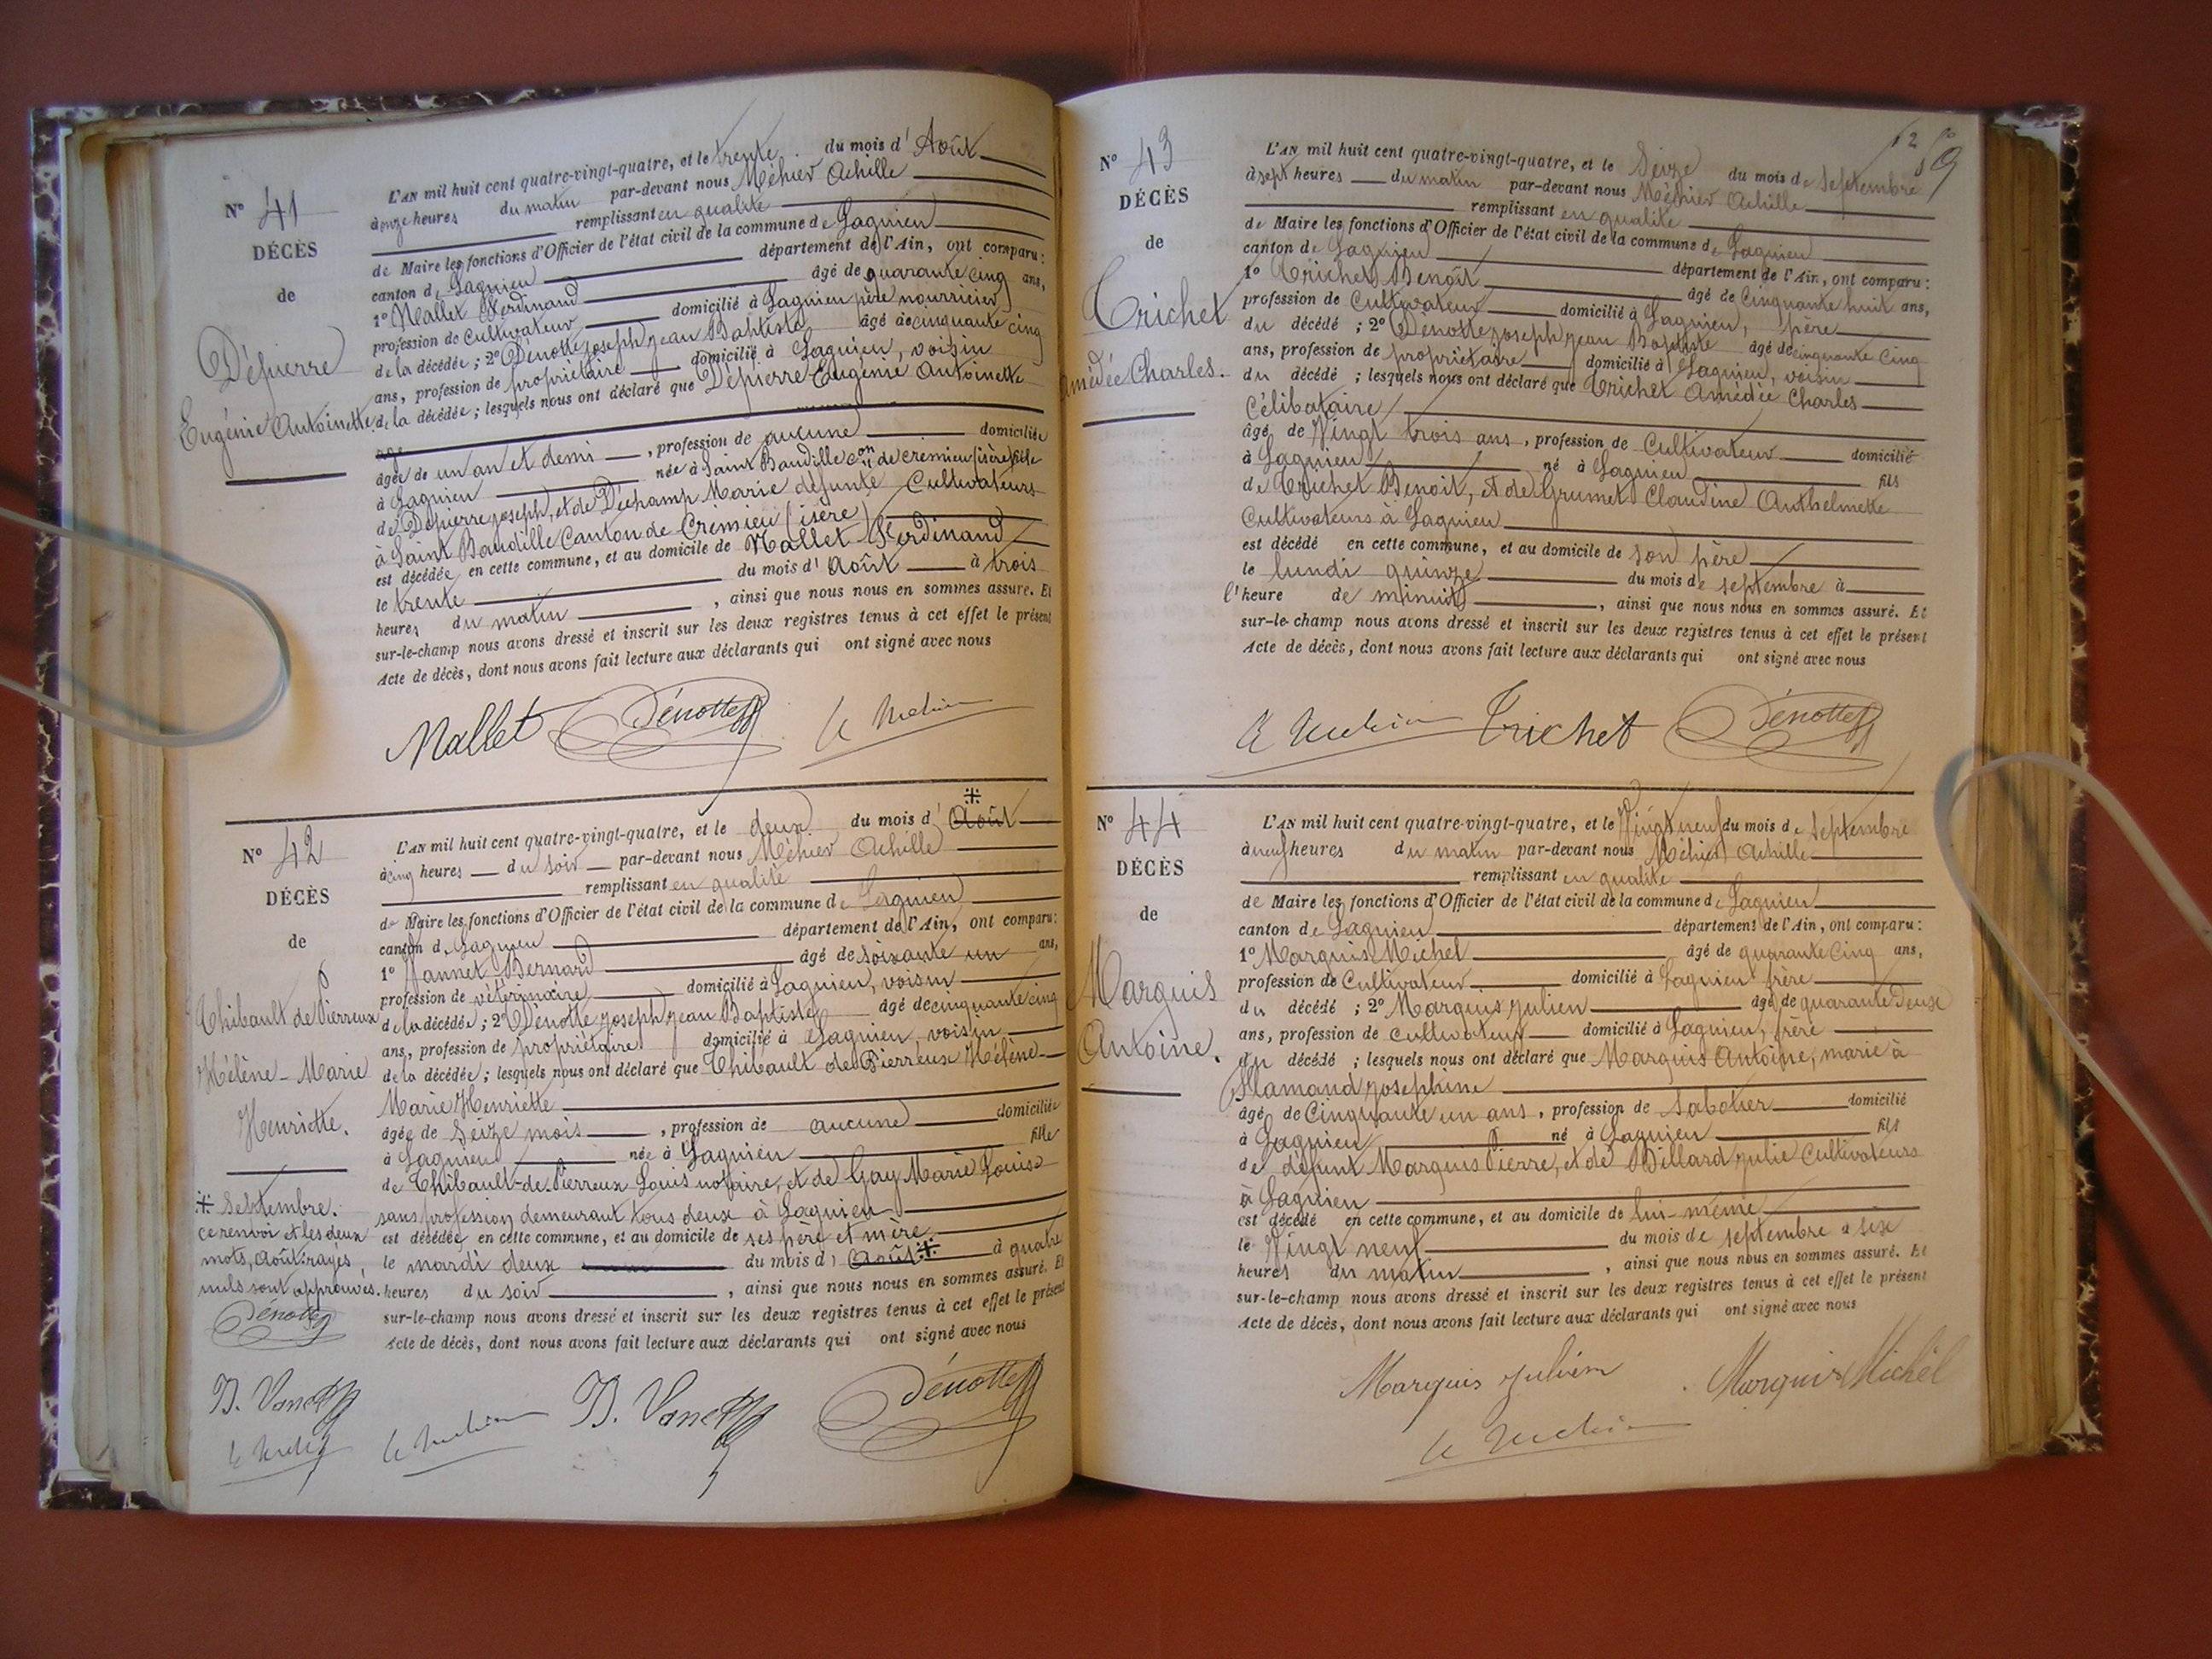 N° 41
DÉCÈS
de
Dépierre
Eugénie Antoinette
L'AN mil huit cent quatre-vingt-quatre, et le trente du mois d' Août
à onze heures du matin par-devant nous Méhier Achille
remplissant en qualité
de Maire les fonctions d'Officier de l'état civil de la commune de Lagnieu
canton de Lagnieu département de l'Ain, ont comparu:
1° Mallet Ferdinand âgé de quarante cinq ans,
profession de Cultivateur domicilié à Lagnieu père nourricier
de la décédée; 2° Dénotte joseph jean Baptiste âgé de cinquante cinq
ans, profession de propriétaire domicilié à Lagnieu, voisin
de la décédée; lesquels nous ont déclaré que Dépierre Eugénie Antoinette
âgée de un an et demi, profession de aucune domiciliée
à Lagnieu née à Saint Baudille con de crémieu (isère) fille
de Dépierre joseph, et de Déchamp Marie défunte Cultivateurs
à Saint Baudille Canton de Crémieu (isère)
est décédée en cette commune, et au domicile de Mallet Ferdinand
le trente du mois d' Août à trois
heures du matin, ainsi que nous nous en sommes assuré. Et
sur-le-champ nous avons dressé et inscrit sur les deux registres tenus à cet effet le présent
Acte de décès, dont nous avons fait lecture aux déclarants qui ont signé avec nous
Mallet Dénotte
N° 42
DÉCÈS
de
Thibault de Pierreux
Hélène-Marie
Henriette.
L'AN mil huit cent quatre-vingt-quatre, et le deux du mois d' Août
à cinq heures du soir par-devant nous Méhier Achille
remplissant en qualité
de Maire les fonctions d'Officier de l'état civil de la commune de Lagnieu
canton de Lagnieu département de l'Ain, ont comparu:
1° Vannet Bernard âgé de soixante un ans,
profession de vétérinaire domicilié à Lagnieu, voisin
de la décédée; 2° Dénotte joseph jean Baptiste âgé de cinquante cinq
ans, profession de propriétaire domicilié à Lagnieu, voisin
de la décédée; lesquels nous ont déclaré que Thibault de Pierreux Hélène
Marie Henriette
âgée de Seize mois, profession de aucune domiciliée
à Lagnieu née à Lagnieu fille
de Thibault-de-Pierreux Louis notaire, et de Gay Marie Louise
sans profession demeurant tous deux à Lagnieu
est décédée en cette commune, et au domicile de ses père et mère
le mardi deux du mois d' Août à quatre
heures du soir, ainsi que nous nous en sommes assuré. Et
sur-le-champ nous avons dressé et inscrit sur les deux registres tenus à cet effet le présent
Acte de décès, dont nous avons fait lecture aux déclarants qui ont signé avec nous
Septembre.
ce renvoi et les deux
mots, août: rayés,
nuls sont approuvés.
Dénotte
B. Vannet
B. Vannet Dénotte
N° 43
DÉCÈS
de
Trichet
Amédée Charles.
L'AN mil huit cent quatre-vingt-quatre, et le Seize du mois de Septembre
à sept heures du matin par-devant nous Méhier Achille
remplissant en qualité
de Maire les fonctions d'Officier de l'état civil de la commune de Lagnieu
canton de Lagnieu département de l'Ain, ont comparu:
1° Trichet Benoît âgé de Cinquante huit ans,
profession de Cultivateur domicilié à Lagnieu, père
du décédé; 2° Dénotte joseph jean Baptiste âgé de cinquante cinq
ans, profession de propriétaire domicilié à Lagnieu, voisin
du décédé; lesquels nous ont déclaré que Trichet Amédée Charles
Célibataire
âgé de Vingt trois ans, profession de Cultivateur domicilié
à Lagnieu né à Lagnieu fils
de Trichet Benoit, et de Grumet Claudine Anthelmette
Cultivateurs à Lagnieu
est décédé en cette commune, et au domicile de son père
le lundi quinze du mois de septembre à
l'heure de minuit, ainsi que nous nous en sommes assuré. Et
sur-le-champ nous avons dressé et inscrit sur les deux registres tenus à cet effet le présent
Acte de décès, dont nous avons fait lecture aux déclarants qui ont signé avec nous
Trichet Dénotte
N° 44
DÉCÈS
de
Marquis
Antoine.
L'AN mil huit cent quatre-vingt-quatre, et le Vingt neuf du mois de Septembre
à neuf heures du matin par-devant nous Méhier Achille
remplissant en qualité
de Maire les fonctions d'Officier de l'état civil de la commune de Lagnieu
canton de Lagnieu département de l'Ain, ont comparu:
1° Marquis Michel âgé de quarante Cinq ans,
profession de Cultivateur domicilié à Lagnieu frère
du décédé; 2° Marquis julien âgé de quarante deux
ans, profession de cultivateur domicilié à Lagnieu, frère
du décédé; lesquels nous ont déclaré que Marquis Antoine, marié à
Flamand josephine
âgé de Cinquante un ans, profession de sabotier domicilié
à Lagnieu né à Lagnieu fils
de défunt Marquis Pierre, et de Billard julie Cultivateurs
à Lagnieu
est décédé en cette commune, et au domicile de lui-même
le Vingt neuf du mois de septembre à six
heures du matin, ainsi que nous nous en sommes assuré. Et
sur-le-champ nous avons dressé et inscrit sur les deux registres tenus à cet effet le présent
Acte de décès, dont nous avons fait lecture aux déclarants qui ont signé avec nous
Marquis julien Marquis Michel